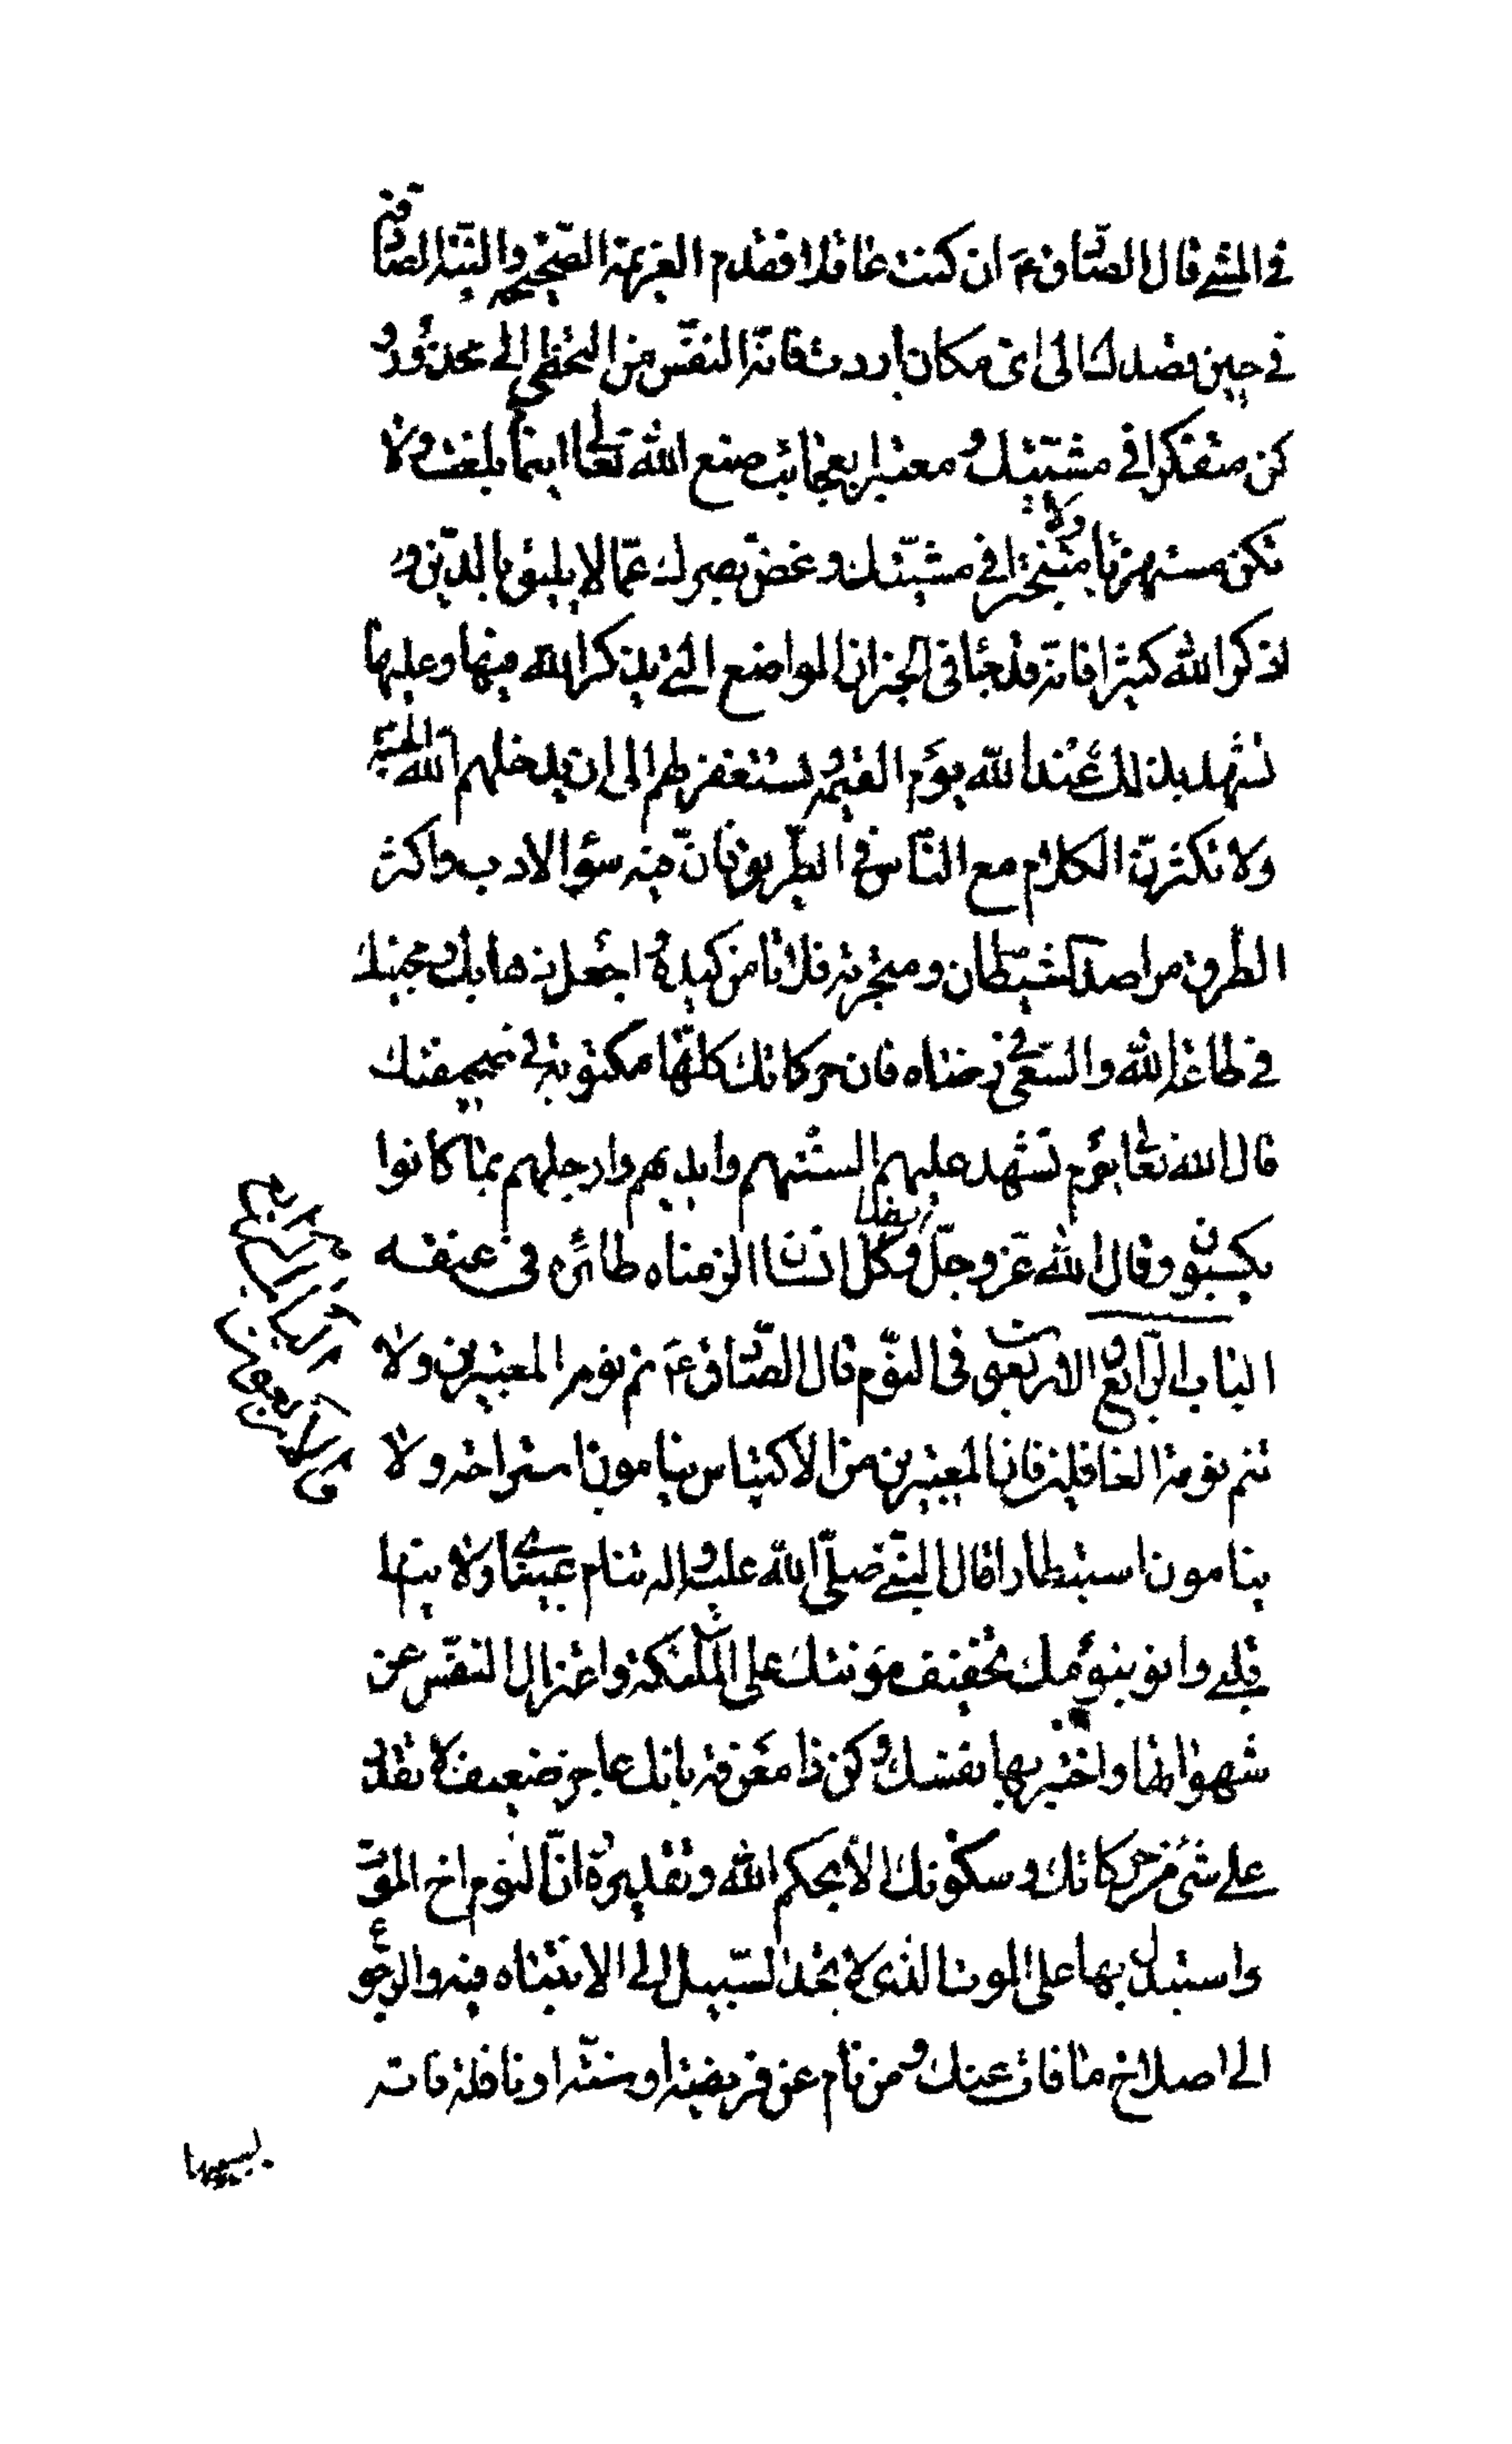 في المشي قال الصّادق ع ان كنت عاقلا فقدم العزيمة الصّحيحة والنيّة الصّادقة
في حين قصدك الى اي مكان اردت فانّه النفس من التخطي الى محذور و
كن متفكرا في مشيّتك و معتبرا بعجائب صنع الله تعالى اينما بلغت و لا
تكن مستهزئا ولا متبخترا في مشيّتك و غض بصرك عمّا لا يليق بالدّين و
اذكر الله كثيرا فانّه قد جاء في الخبر ان المواضع التي يذكر الله فيها وعليها
تشهد بذلك عند الله يوم القيمة و تستغفر لهم الى ان يدخلهم الله الجنّة
ولا تكثرنّ الكلام مع النّاس في الطّريق فانّ فيه سوء الادب واكثر
الطّرق مراصد الشيطان و متجرته فلا تامن كيده و اجعل ذهابك و مجيئك
في طاعة الله والسّعي في رضاه فان حركاتك كلّها مكتوبة في صحيفتك
قال الله تعالى يوم تشهد عليهم السنتهم وايديهم وارجلهم بما كانوا
يكسبون وقال الله عز و جلّ و كلّ انسان الزمناه طائره في عنقه
الباب الرّابع و الاربعون في النّوم قال الصّادق ع نم نومة المعتبرين ولا
تنم نومة الغافلين فان المعتبرين من الاكياس ينامون استراحة ولا
ينامون استبطارا قال النبيّ صلّى الله عليه واله تنام عيناي ولا ينام
قلبي وانو بنومك تخفيف مؤنتك على الملئكة واعتزال النفس عن
شهواتها واختبر بها نفسك و كن ذا معرفة بانك عاجز ضعيف لا تقدر
على شيء من حركاتك و سكونك الا بحكم الله وتقديره و انّ النوم اخ الموت
واستدل بها على الموت الذي لا تجد السّبيل الى الانتباه فيه والرجوع
الى اصلاح ما فات عنك و من نام عن فريضة او سنّة او نافلة فاته
بسببها